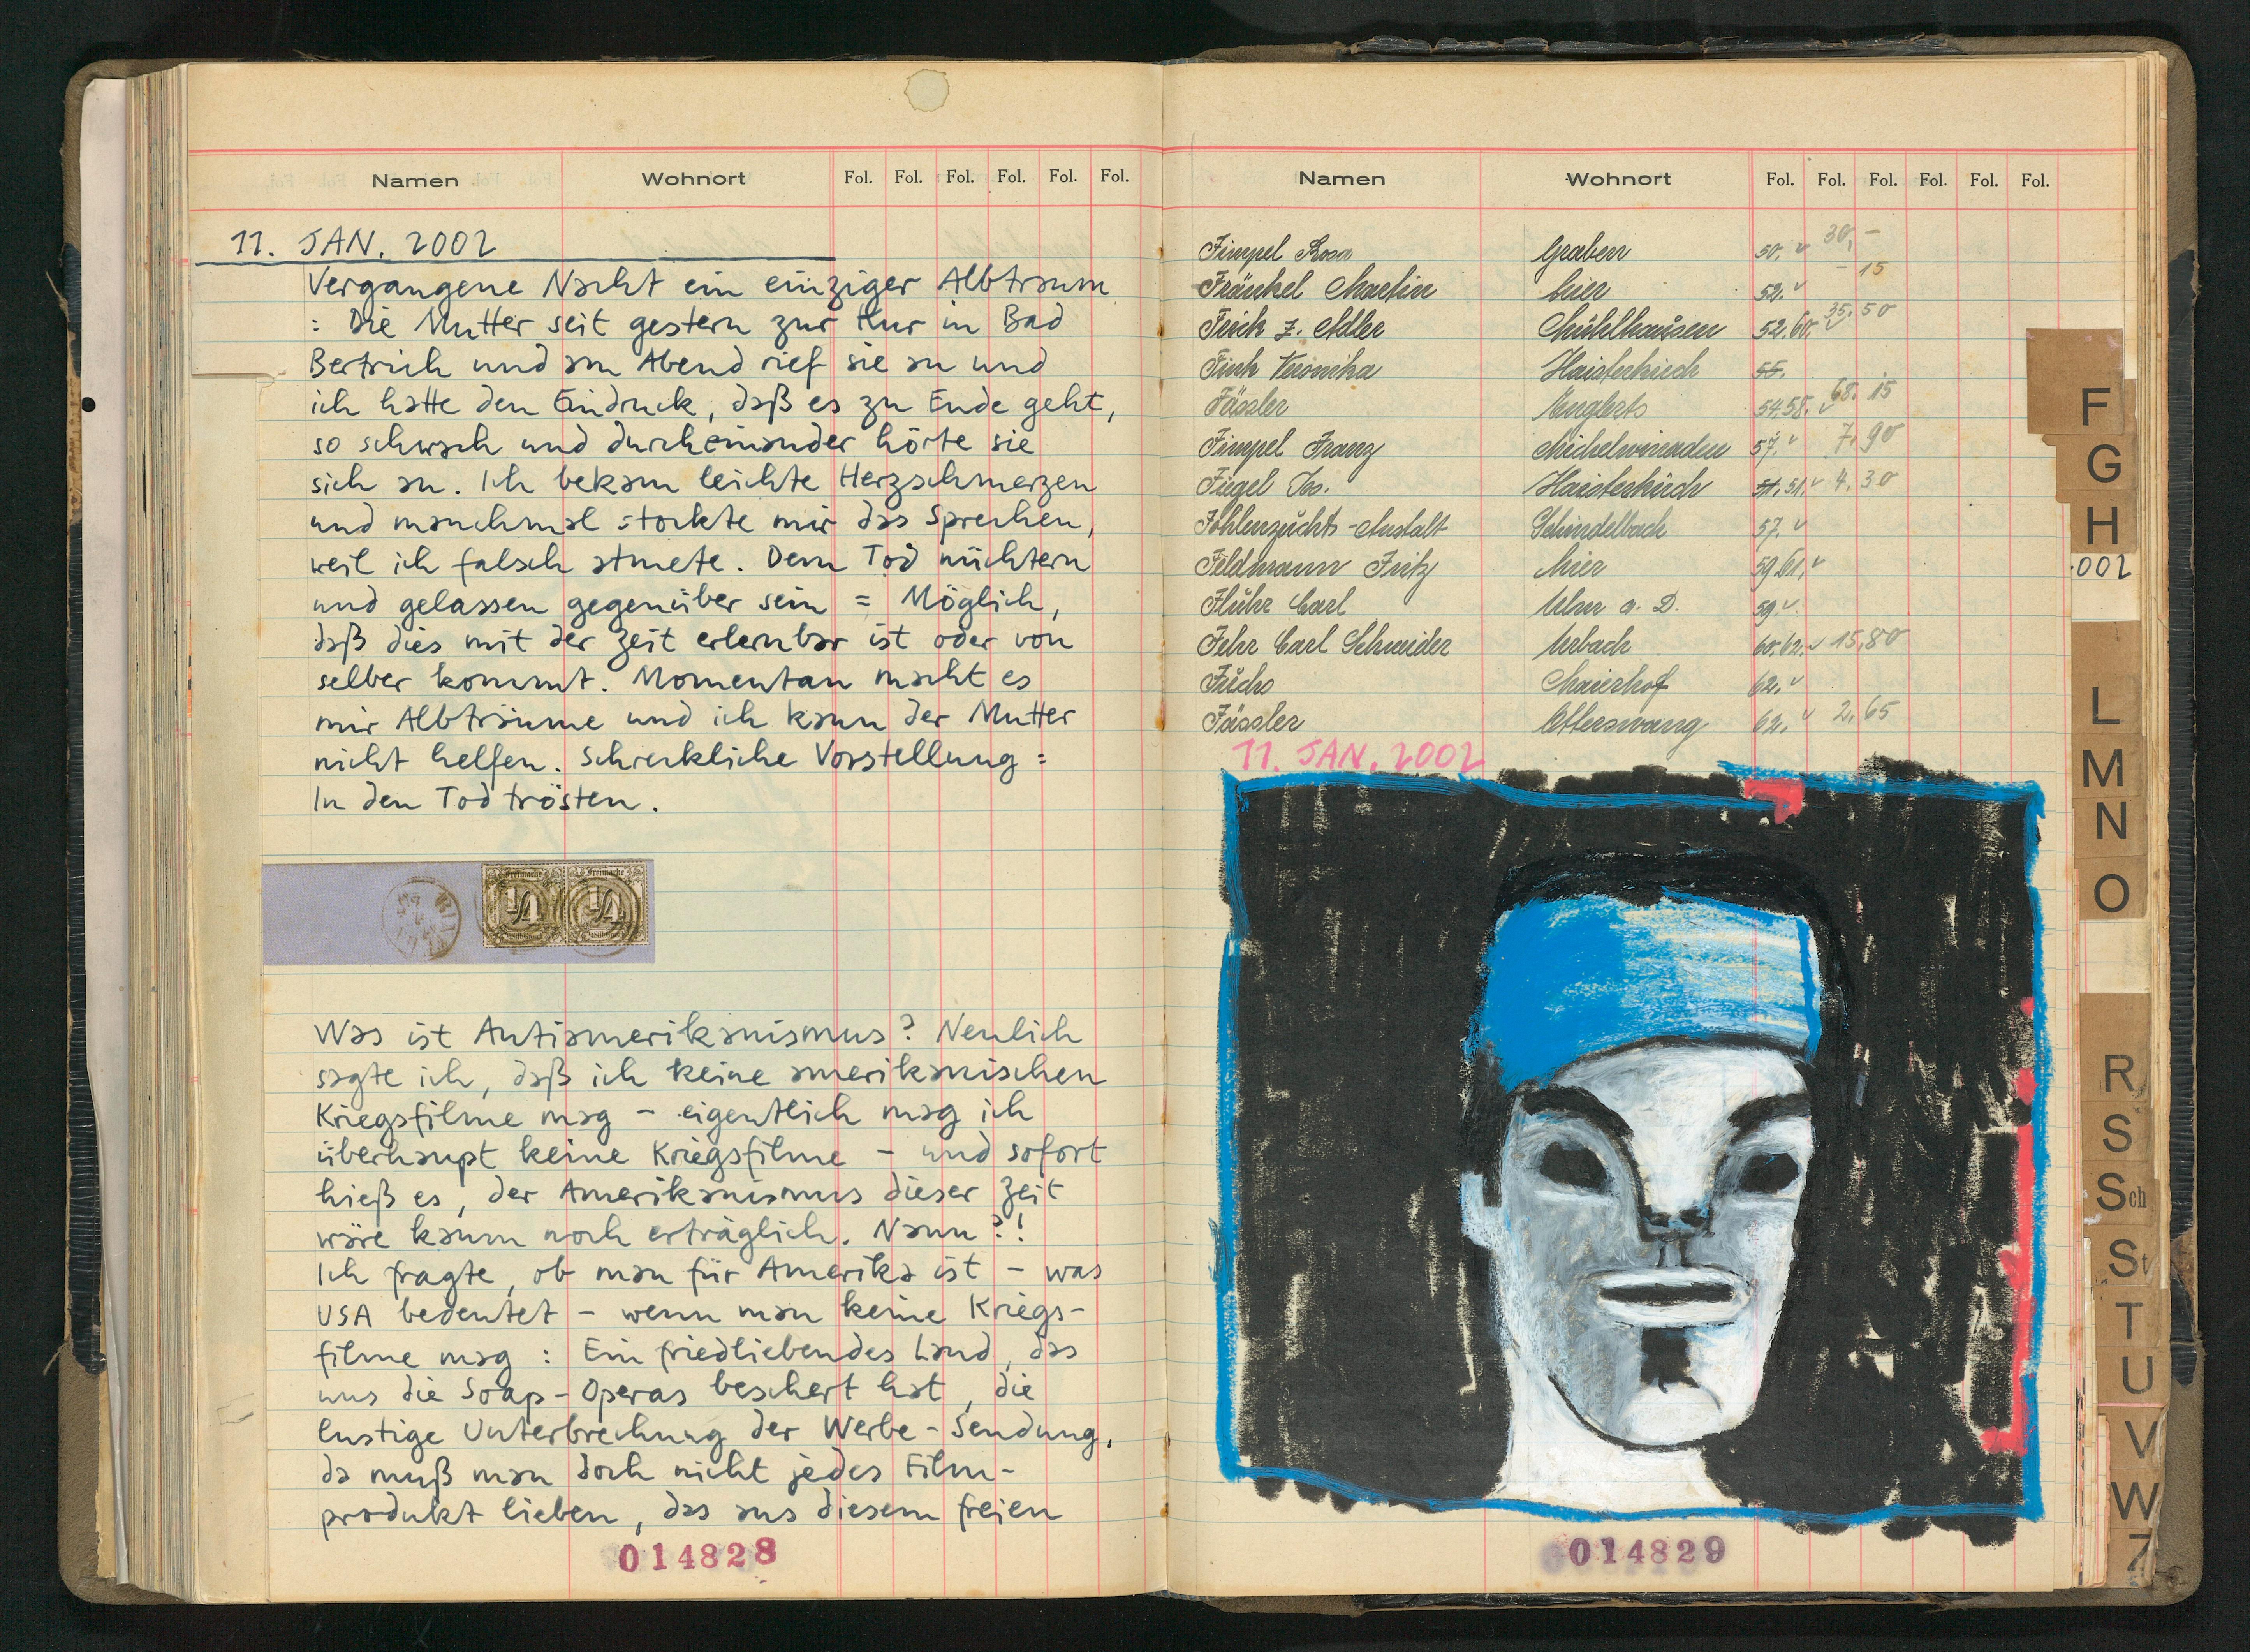 Namen Wohnort Fol. Fol. Fol. Fol. Fol. Fol.
11. JAN. 2002
Vergangene Nacht ein einziger Albtraum
: Die Mutter seit gestern zur Kur in Bad
Bertrich und am Abend rief sie an und
ich hatte den Eindruck, daß es zu Ende geht,
so schwach und durcheinander hörte sie
sich an. Ich bekam leichte Herzschmerzen
und manchmal stockte mir das Sprechen,
weil ich falsch atmete. Dem Tod nüchtern
und gelassen gegenüber sein = Möglich,
daß dies mit der Zeit erlernbar ist oder von
selber kommt. Momentan macht es
mir Albträume und ich kann der Mutter
nicht helfen. Schreckliche Vorstellung :
In den Tod trösten.
Freimarke Freimarke
1/4 1/4
Was ist Antiamerikanismus? Neulich
sagte ich, daß ich keine amerikanischen
Kriegsfilme mag – eigentlich mag ich
überhaupt keine Kriegsfilme – und sofort
hieß es, der Amerikanismus dieser Zeit
wäre kaum noch erträglich. Nanu?!
Ich fragte, ob man für Amerika ist – was
USA bedeutet – wenn man keine Kriegs-
filme mag : Ein friedliebendes Land, das
uns die Soap-Operas beschert hat, die
lustige Unterbrechung der Werbe-Sendung,
da muß man doch nicht jedes Film-
produkt lieben, das aus diesem freien
014828
Namen Wohnort Fol. Fol. Fol. Fol. Fol. Fol.
Fimpel Rosa Graben 50. 30,-
Fränkel Martin hier 52. - 15
Frick z. Adler Mühlhausen 52.60. 35.50
Fink Veronika Haisterkirch 55.
Fässler Englerts 54.58. 68.15
Fimpel Franz Michelwinnaden 57. 7.90
Fugel Jos. Haisterkirch 51.51. 4.30
Fohlenzucht-Anstalt Schindelbach 57.
Feldmann Fritz hier 59.61.
Fluhr Carl Ulm a. D. 59.
Fehr Carl Schneider Urbach 60.62. 15,80
Fuchs Maierhof 62.
Fässler Otterswang 62. 2.65
11. JAN. 2002
014829
F
G
H
002
L
M
N
O
R
S
Sch
St
T
U
V
W
Z